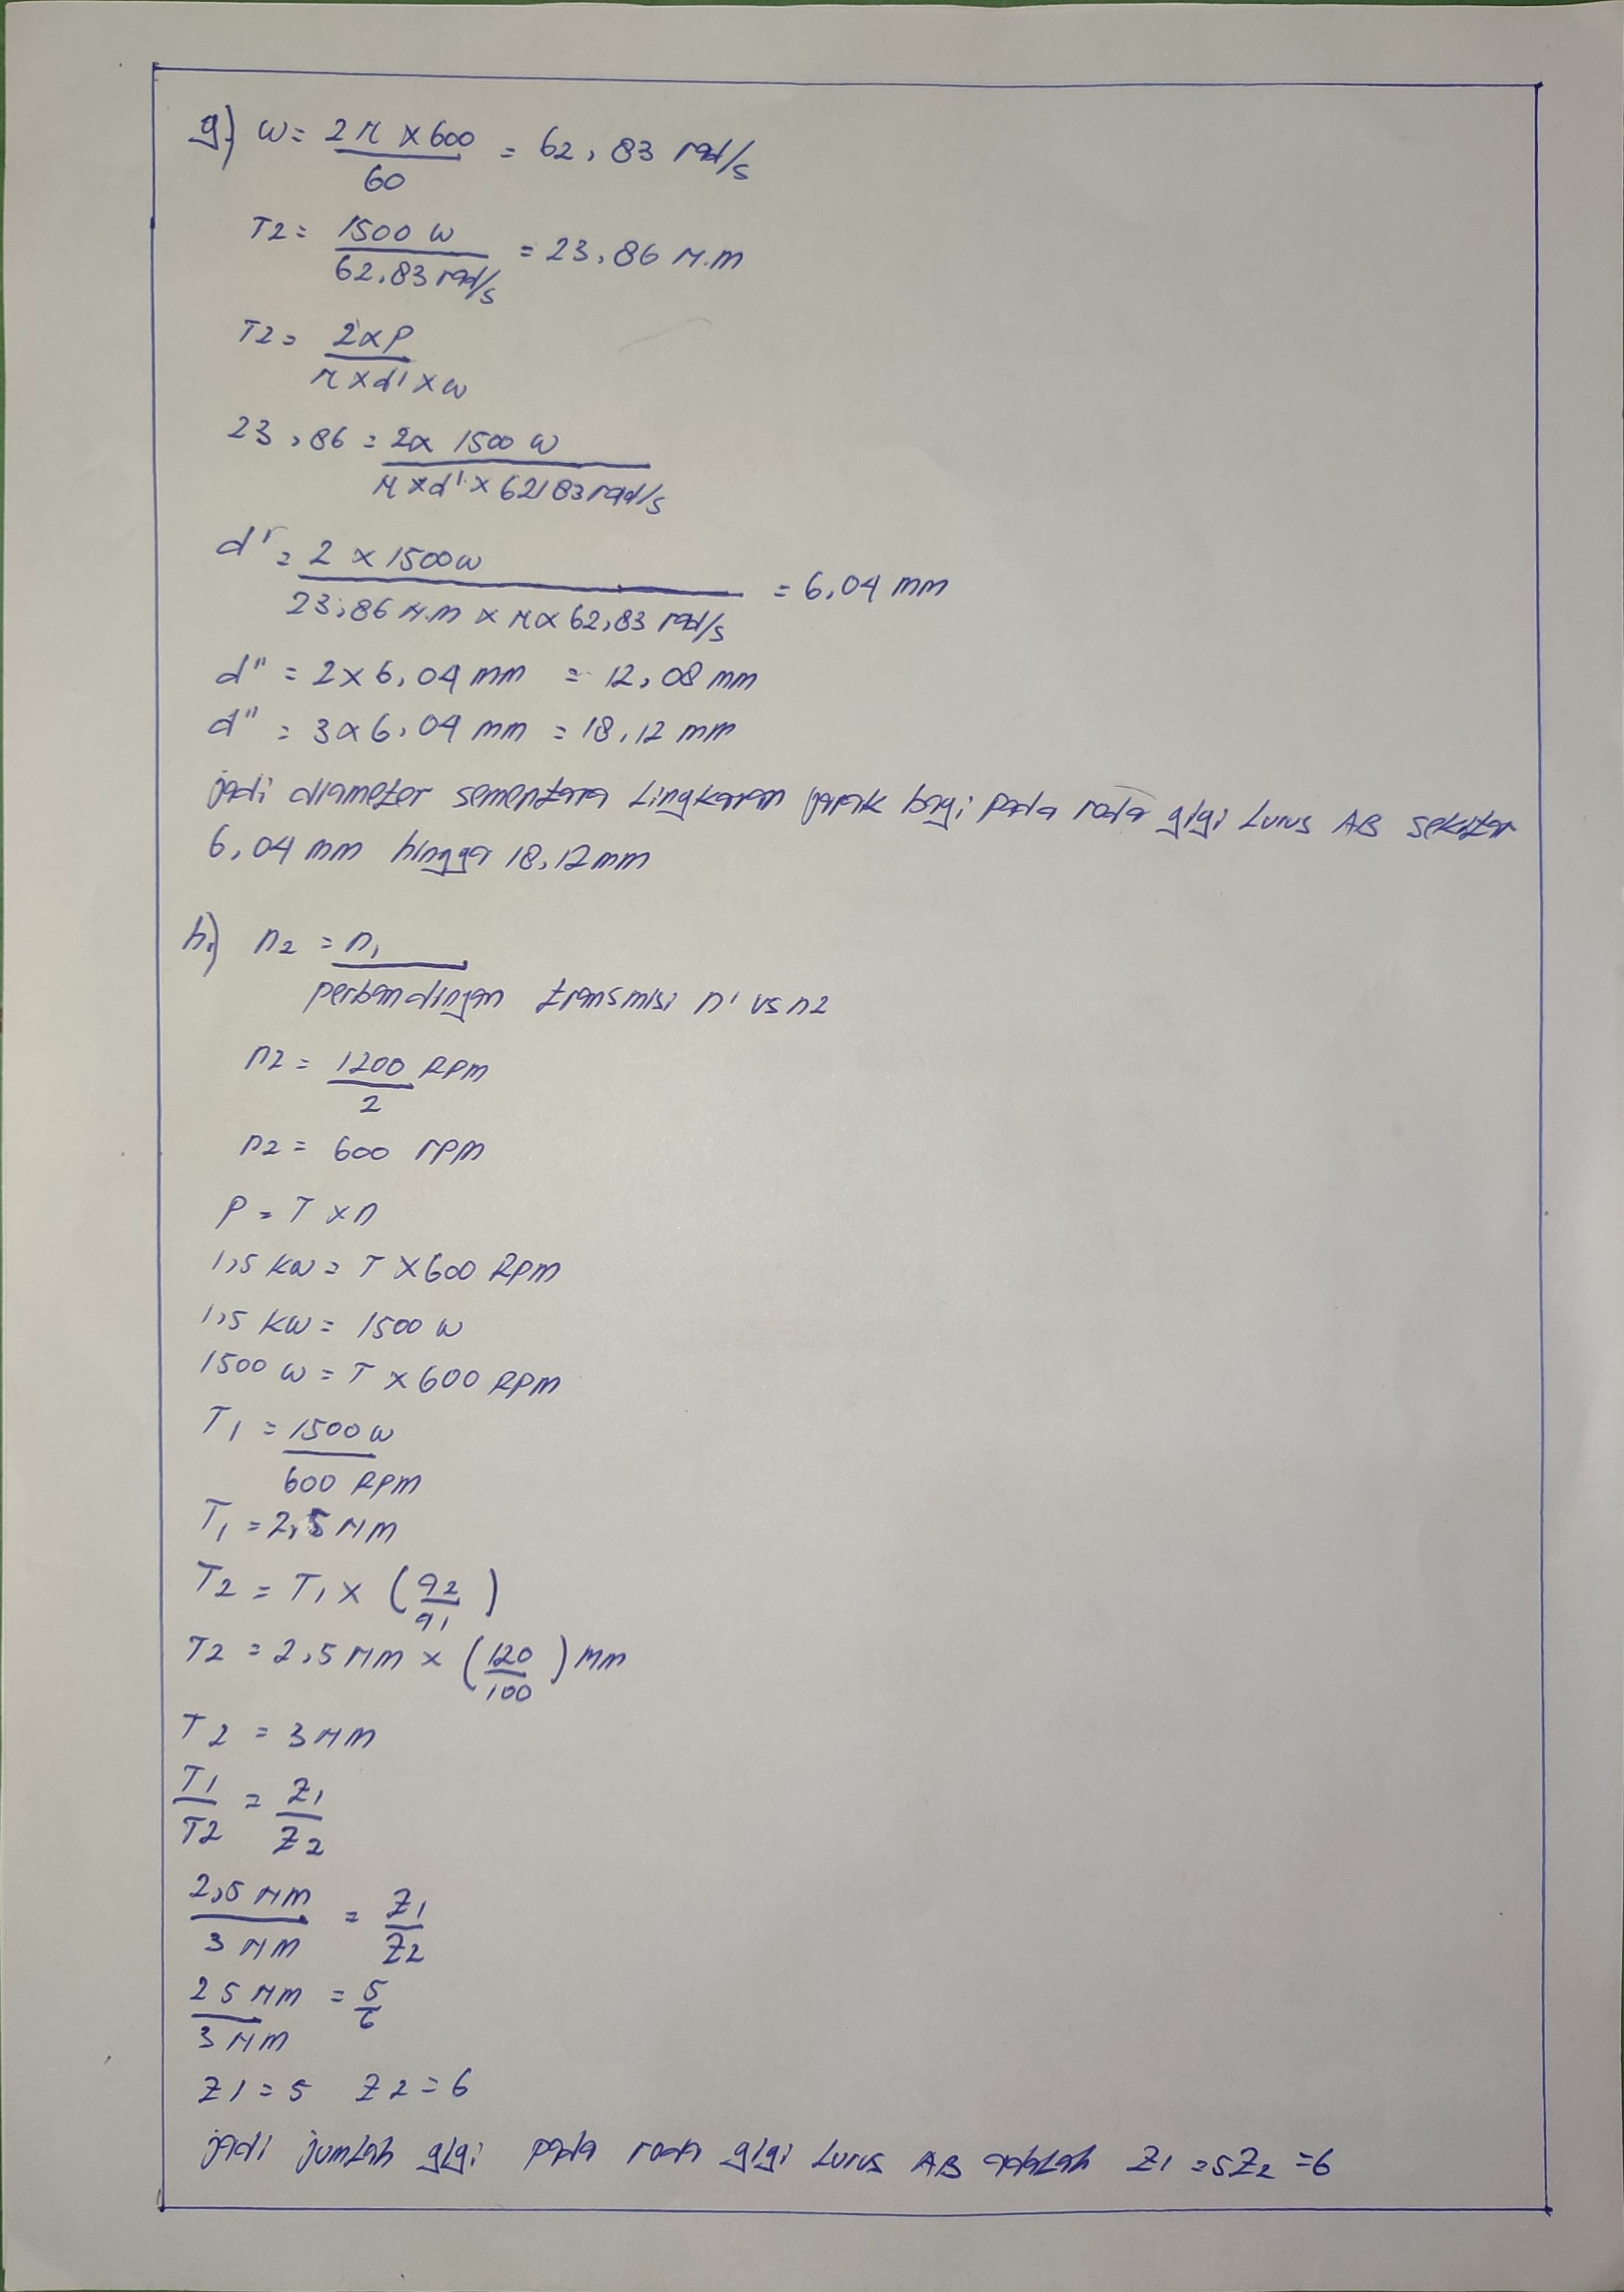 g) ω = 2π × 600 / 60 = 62,83 rad/s
T2 = 1500 W / 62,83 rad/s = 23,86 N.m
T2 = 2×P / π×d'×ω
23,86 = 2× 1500 W / π×d'×62,83 rad/s
d' = 2 × 1500 W / 23,86 N.m × π × 62,83 rad/s = 6,04 mm
d" = 2×6,04 mm = 12,08 mm
d" = 3×6,04 mm = 18,12 mm
jadi diameter sementara Lingkaran jarak bagi pada roda gigi Lurus AB sekitar
6,04 mm hingga 18,12 mm
h.) n2 = n1 / perbandingan transmisi n' vs n2
n2 = 1200 RPM / 2
n2 = 600 rpm
P = T × n
1,5 KW = T × 600 RPM
1,5 KW = 1500 W
1500 W = T × 600 RPM
T1 = 1500 W / 600 RPM
T1 = 2,5 NM
T2 = T1 × (a2 / a1)
T2 = 2,5 NM × (120 / 100) mm
T2 = 3 NM
T1 / T2 = Z1 / Z2
2,5 NM / 3 NM = Z1 / Z2
25 NM / 3 NM = 5 / 6
Z1 = 5 Z2 = 6
jadi jumlah gigi pada roda gigi Lurus AB adalah Z1 = 5 Z2 = 6